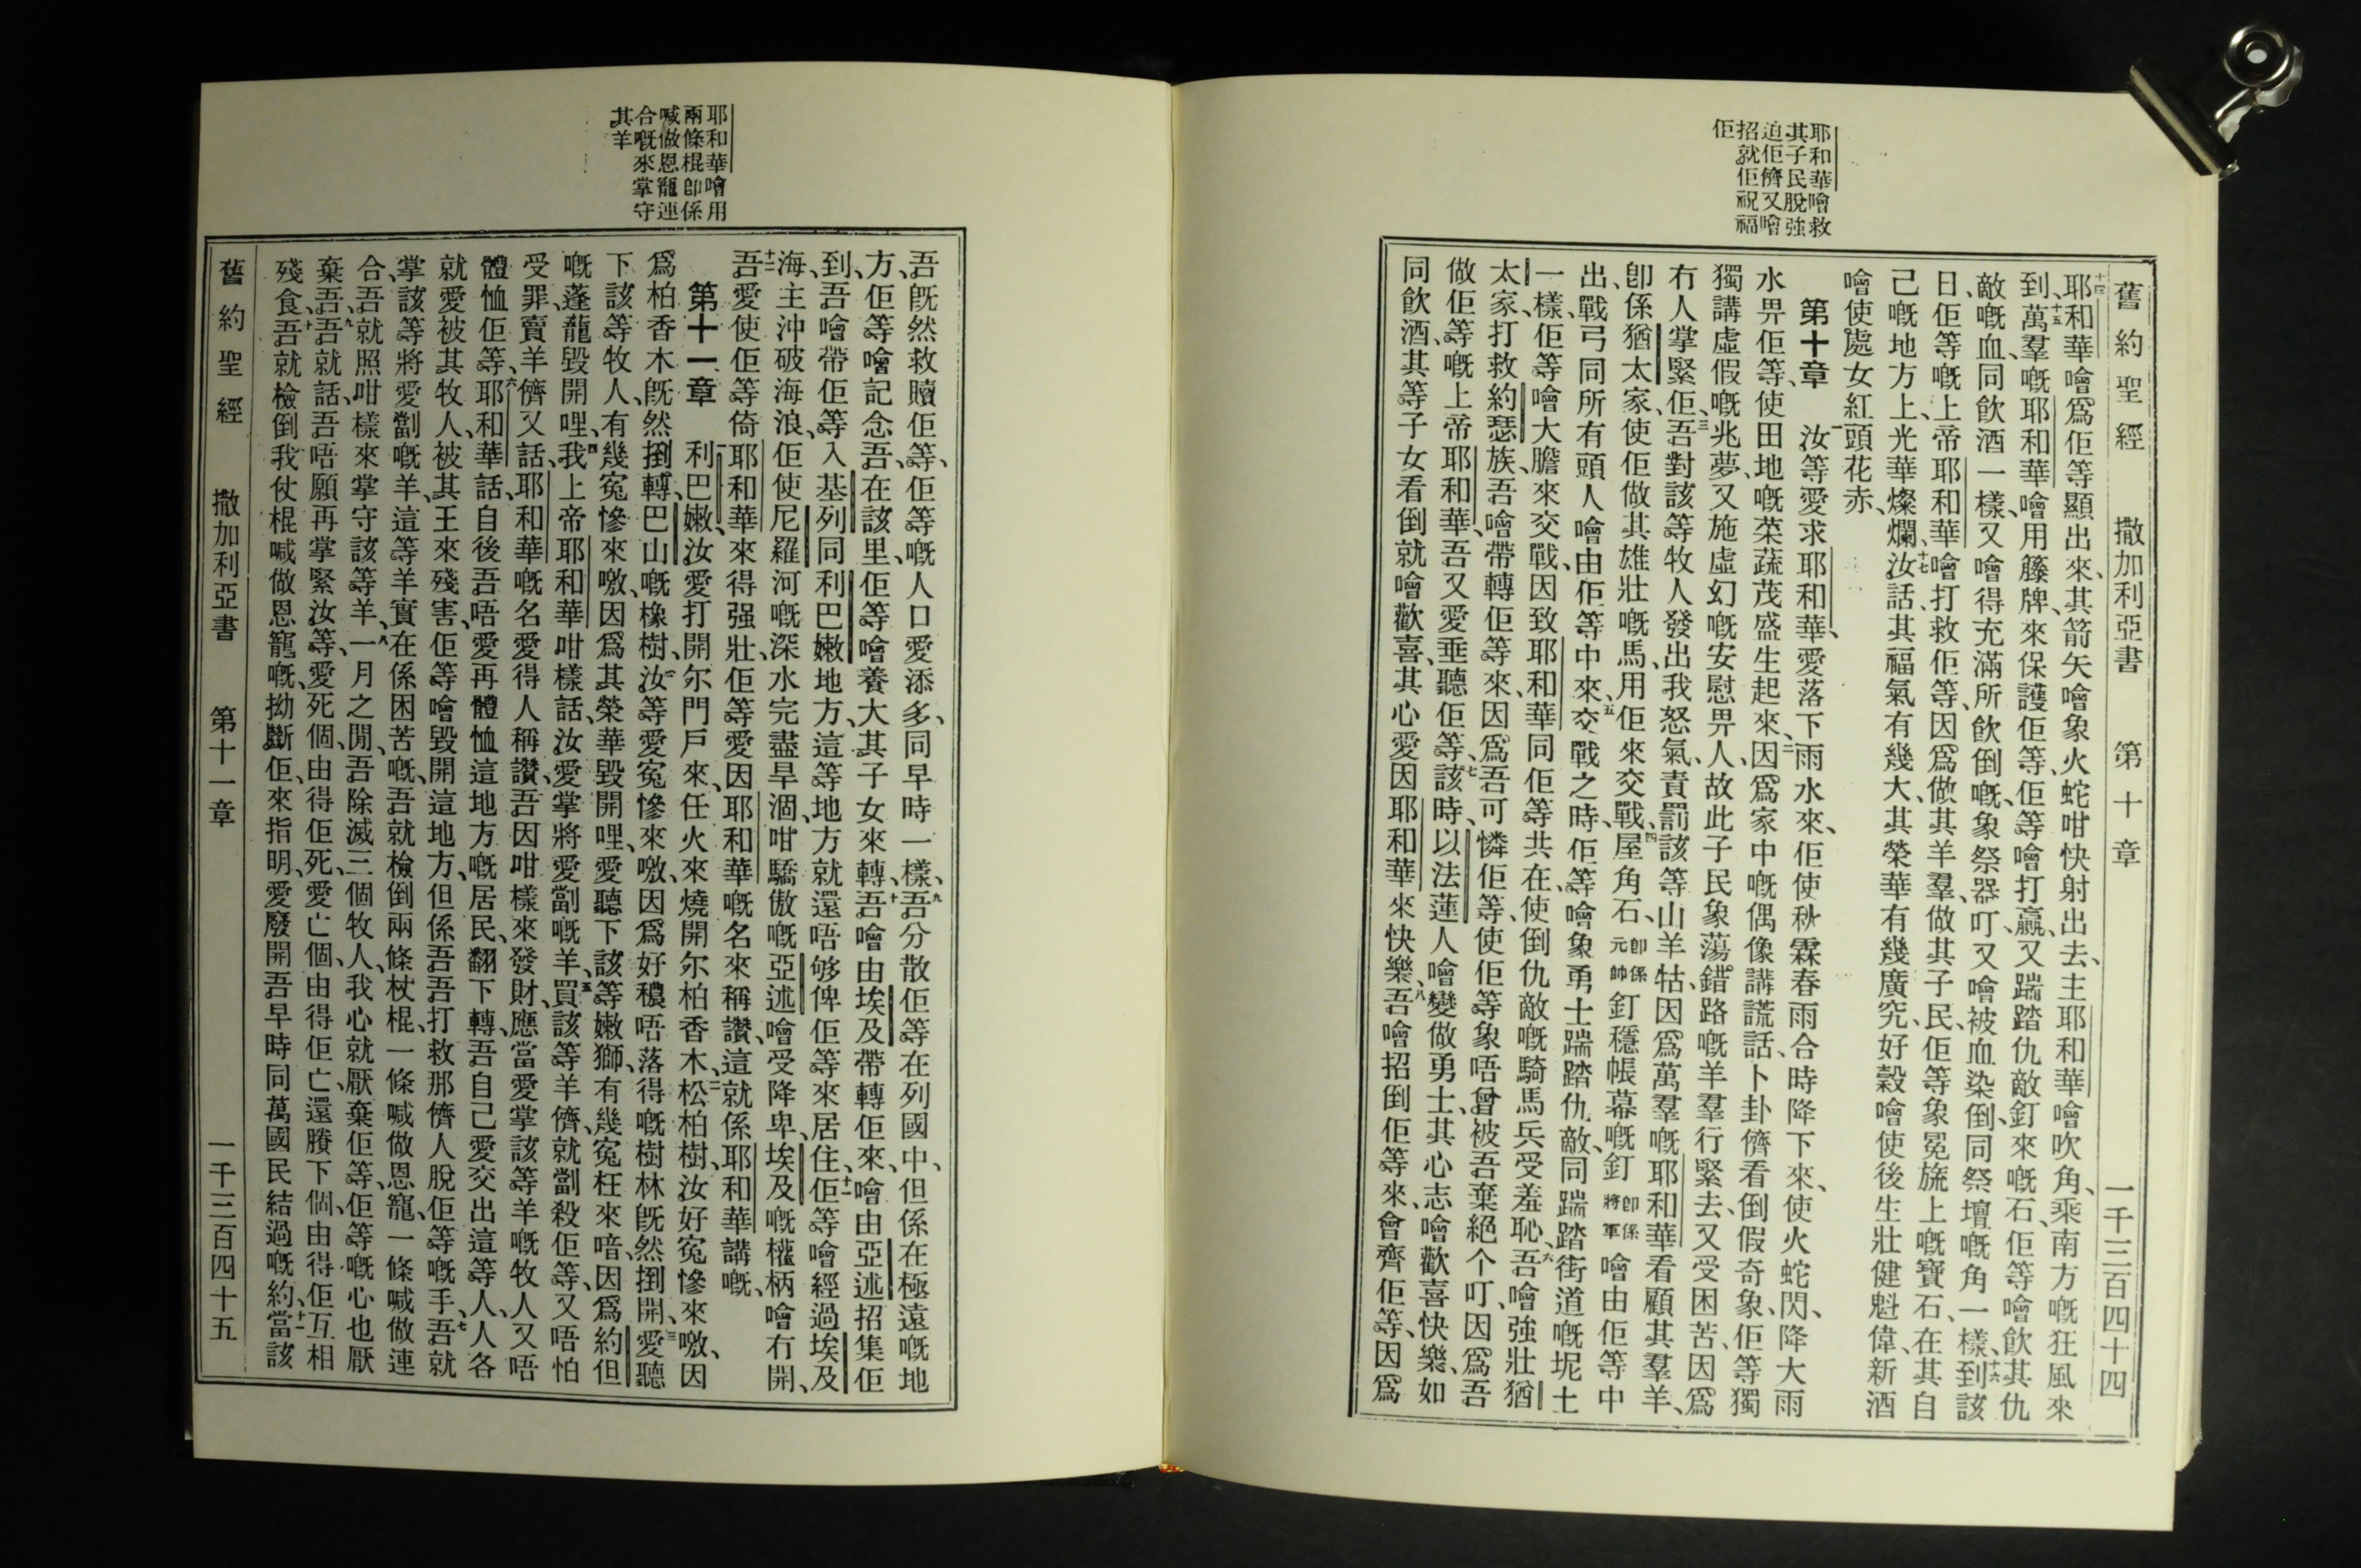 舊約聖經 撒加利亞書 第十章 一千三百四十四
耶和華噲救
其子民脫強
迫佢儕又噲
招就佢祝福
佢
十四耶和華噲爲佢等顯出來、其箭矢噲象火蛇咁快射出去、主耶和華噲吹角、乘南方嘅狂風來
到、十五萬羣嘅耶和華噲用籐牌來保護佢等、佢等噲打贏、又踹踏仇敵釘來嘅石、佢等噲飲其仇
敵嘅血、同飲酒一樣、又噲得充滿所飲倒嘅、象祭器叮、又噲被血染倒、同祭壇嘅角一樣、十六到該
日、佢等嘅上帝耶和華噲打救佢等、因爲做其羊羣、做其子民、佢等象冕旒上嘅寶石、在其自
己嘅地方上、光華燦爛、十七汝話、其福氣有幾大、其榮華有幾廣究、好穀噲使後生壯健魁偉、新酒
噲使處女紅頭花赤、
第十章 一汝等愛求耶和華、愛落下雨水來、佢使秋霖春雨合時降下來、使火蛇閃、降大雨
水畀佢等、使田地嘅菜蔬茂盛生起來、二因爲家中嘅偶像講謊話、卜卦儕看倒假奇象、佢等獨
獨講虛假嘅兆夢、又施虛幻嘅安慰畀人、故此子民象蕩錯路嘅羊羣行緊去、又受困苦、因爲
冇人掌緊佢、三吾對該等牧人發出我怒氣、責罰該等山羊牯、因爲萬羣嘅耶和華看顧其羣羊、
卽係猶太家、使佢做其雄壯嘅馬、用佢來交戰、四屋角石、卽係元帥釘穩帳幕嘅釘卽係將軍噲由佢等中
出、戰弓同所有頭人噲由佢等中來、五交戰之時、佢等噲象勇士踹踏仇敵、同踹踏街道嘅坭土
一樣、佢等噲大膽來交戰、因致耶和華同佢等共在、使倒仇敵嘅騎馬兵受羞恥、六吾噲強壯猶
太家、打救約瑟族、吾噲帶轉佢等來、因爲吾可憐佢等、使佢等象唔曾被吾棄絕个叮、因爲吾
做佢等嘅上帝耶和華、吾又愛垂聽佢等、七該時、以法蓮人噲變做勇士、其心志噲歡喜快樂、如
同飲酒、其等子女看倒就噲歡喜、其心愛因耶和華來快樂、八吾噲招倒佢等來、會齊佢等、因爲
耶和華噲用
兩條棍卽係
喊做恩寵連
合嘅來掌守
其羊
吾旣然救贖佢等、佢等嘅人口愛添多、同早時一樣、九吾分散佢等在列國中、但係在極遠嘅地
方、佢等噲記念吾、在該里、佢等噲養大其子女來轉、十吾噲由埃及帶轉佢來、噲由亞述招集佢
到、吾噲帶佢等入基列同利巴嫩地方、這等地方就還唔够俾佢等來居住、十一佢等噲經過埃及
海、主沖破海浪、佢使尼羅河嘅深水完盡旱涸、咁驕傲嘅亞述噲受降卑、埃及嘅權柄噲冇開、
十二吾愛使佢等倚耶和華來得强壯、佢等愛因耶和華嘅名來稱讚、這就係耶和華講嘅、
第十一章 一利巴嫩、汝愛打開尔門戶來、任火來燒開尔柏香木、二松柏樹、汝好冤慘來噭、因
爲柏香木旣然捯轉、巴山嘅橡樹、汝等愛冤慘來噭、因爲好穠唔落得嘅樹林旣然捯開、三愛聽
下該等牧人、有幾冤慘來噭、因爲其榮華毀開哩、愛聽下該等嫩獅、有幾冤枉來喑、因爲約但
嘅蓬蘢毀開哩、四我上帝耶和華咁樣話、汝愛掌將愛劏嘅羊、五買該等羊儕、就劏殺佢等、又唔怕
受罪、賣羊儕又話、耶和華嘅名愛得人稱讚、吾因咁樣來發財、應當愛掌該等羊嘅牧人又唔
體恤佢等、六耶和華話、自後吾唔愛再體恤這地方嘅居民、翻下轉、吾自己愛交出這等人、人各
就愛被其牧人、被其王來殘害、佢等噲毀開這地方、但係吾吾打救那儕人脫佢等嘅手、七吾就
掌該等將愛劏嘅羊、這等羊實在係困苦嘅、吾就檢倒兩條杖棍、一條喊做恩寵、一條喊做連
合、吾就照咁樣來掌守該等羊、八一月之間、吾除滅三個牧人、我心就厭棄佢等、佢等嘅心也厭
棄吾、九吾就話、吾唔願再掌緊汝等、愛死個、由得佢死、愛亡個、由得佢亡、還賸下個、由得佢互相
殘食、十吾就檢倒我仗棍喊做恩寵嘅、拗斷佢、來指明、愛廢開吾早時同萬國民結過嘅約、十一當該
舊約聖經 撒加利亞書 第十一章 一千三百四十五